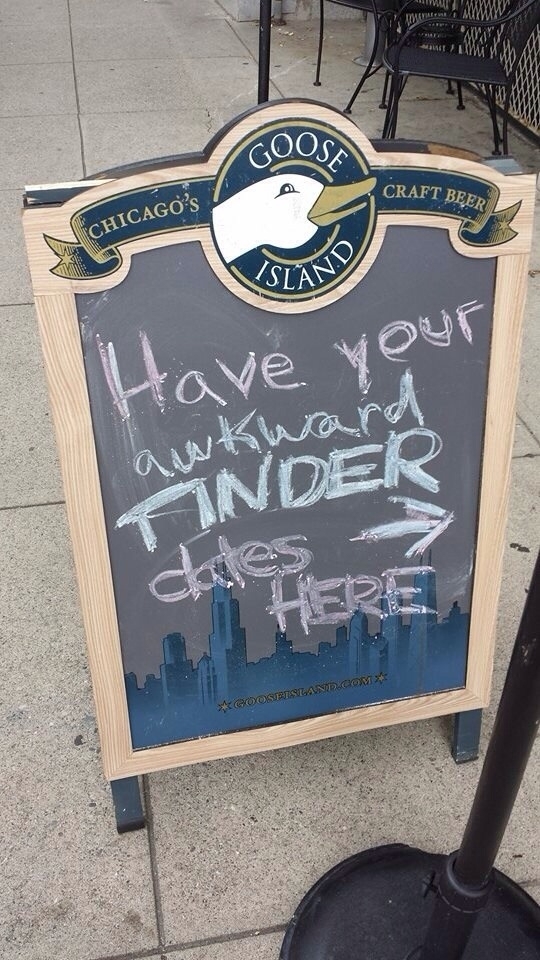 GOOSE
CHICAGO'S
CRAFT BEER
ISLAND
Have your
awkward
TINDER
dates →
HERE
★ GOOSEISLAND.COM ★